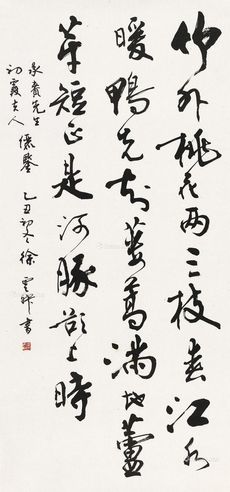 竹外桃花两三枝春江水
暖鴨先知蔞蒿滿地蘆
芽短正是河豚欲上時
先生
初霞夫人
儷鑒 乙丑初冬徐雲叔書